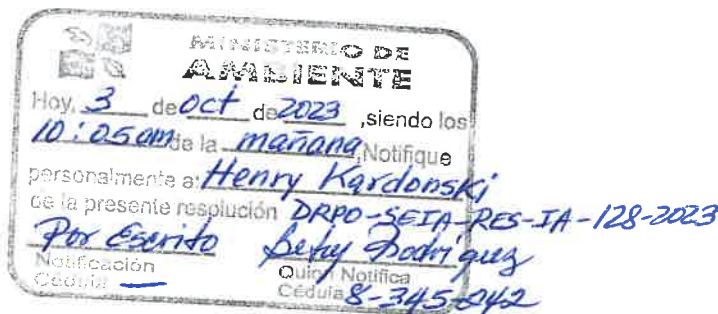 MINISTERIO DE
AMBIENTE
Hoy, 3 de Oct de 2023 ,siendo los
10:05 am de la mañana, Notifique
personalmente a: Henry Kardonski
de la presente resolución DRPO-SEIA-RES-IA-128-2023
Por Escrito Betzy Rodríguez
Notificación Quien Notifica
Cédula — Cédula 8-345-242